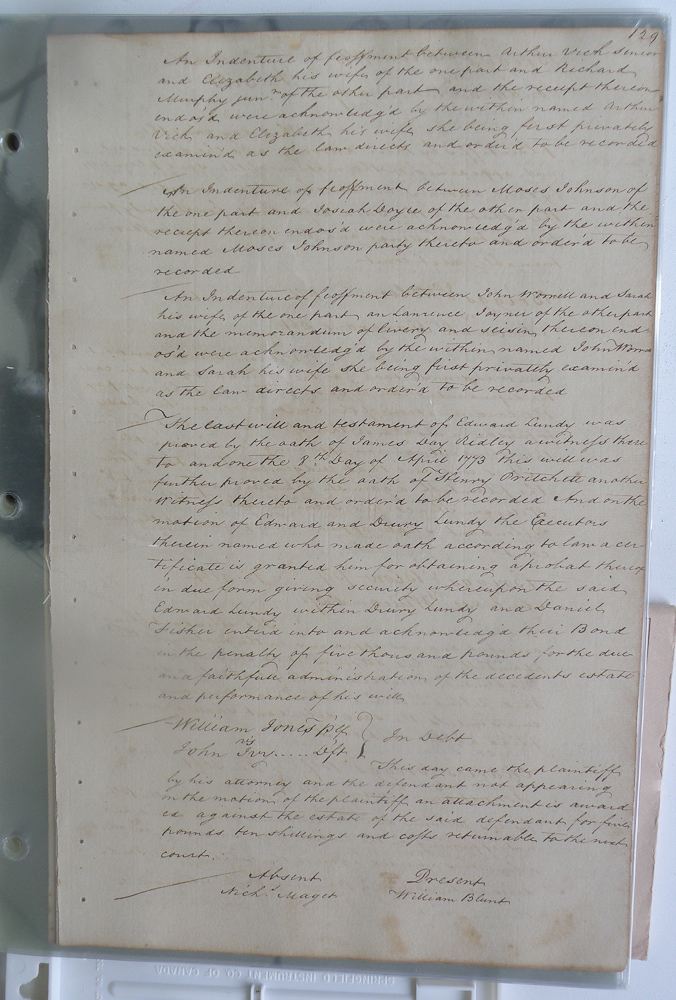 129
An Indenture of feoffment between Arthur Vick Senior
and Elizabeth his wife of the one part and Richard
Murphy junr of the other part and the receipt thereon
endos'd were acknowledg'd by the within named Arthur
Vick and Elizabeth his wife she being first privately
examin'd as the law directs and order'd to be recorded
An Indenture of feoffment between Moses Johnson of
the one part and Josiah Doyle of the other part and the
reciept thereon endos'd were acknowledg'd by the within
named Moses Johnson party thereto and order'd to be
recorded
An Indenture of feoffment between John Worrell and Sarah
his wife of the one part an Lawrence Joyner of the other part
and the memorandum of livery and seisin thereon end-
os'd were acknowledg'd by the within named John
and Sarah his wife she being first privately examin'd
as the law directs and order'd to be recorded
The last will and testament of Edward Lundy was
proved by the oath of James Day Ridley a witness there
to and one the 8th Day of April 1773 this will was
further proved by the oath of Henry Pritchett another
Witness thereto and order'd to be recorded And on the
motion of Edward and Drury Lundy the Executors
therein named who made oath according to law a cer-
tificate is granted him for obtaining a probat thereof
in due form giving security whereupon the said
Edward Lundy within Drury Lundy and Daniel
Fisher enter'd into and acknowledg'd their Bond
in the penalty of five thousand pounds for the due
an a faithfull administration of the decedents estate
and performance of his will
William Jones plf
vs
John Ivy ..... Dft
In Debt
This day came the plaintiff
by his attorney and the defendant not appearing
on the motion of the plaintiff an attachment is award
ed against the estate of the said defendant for five
pounds ten shillings and costs returnable to the next
court.
Absent
Present
Nichs Maget
William Blunt
SPRINGFIELD INSTRUMENT CO OF CANADA